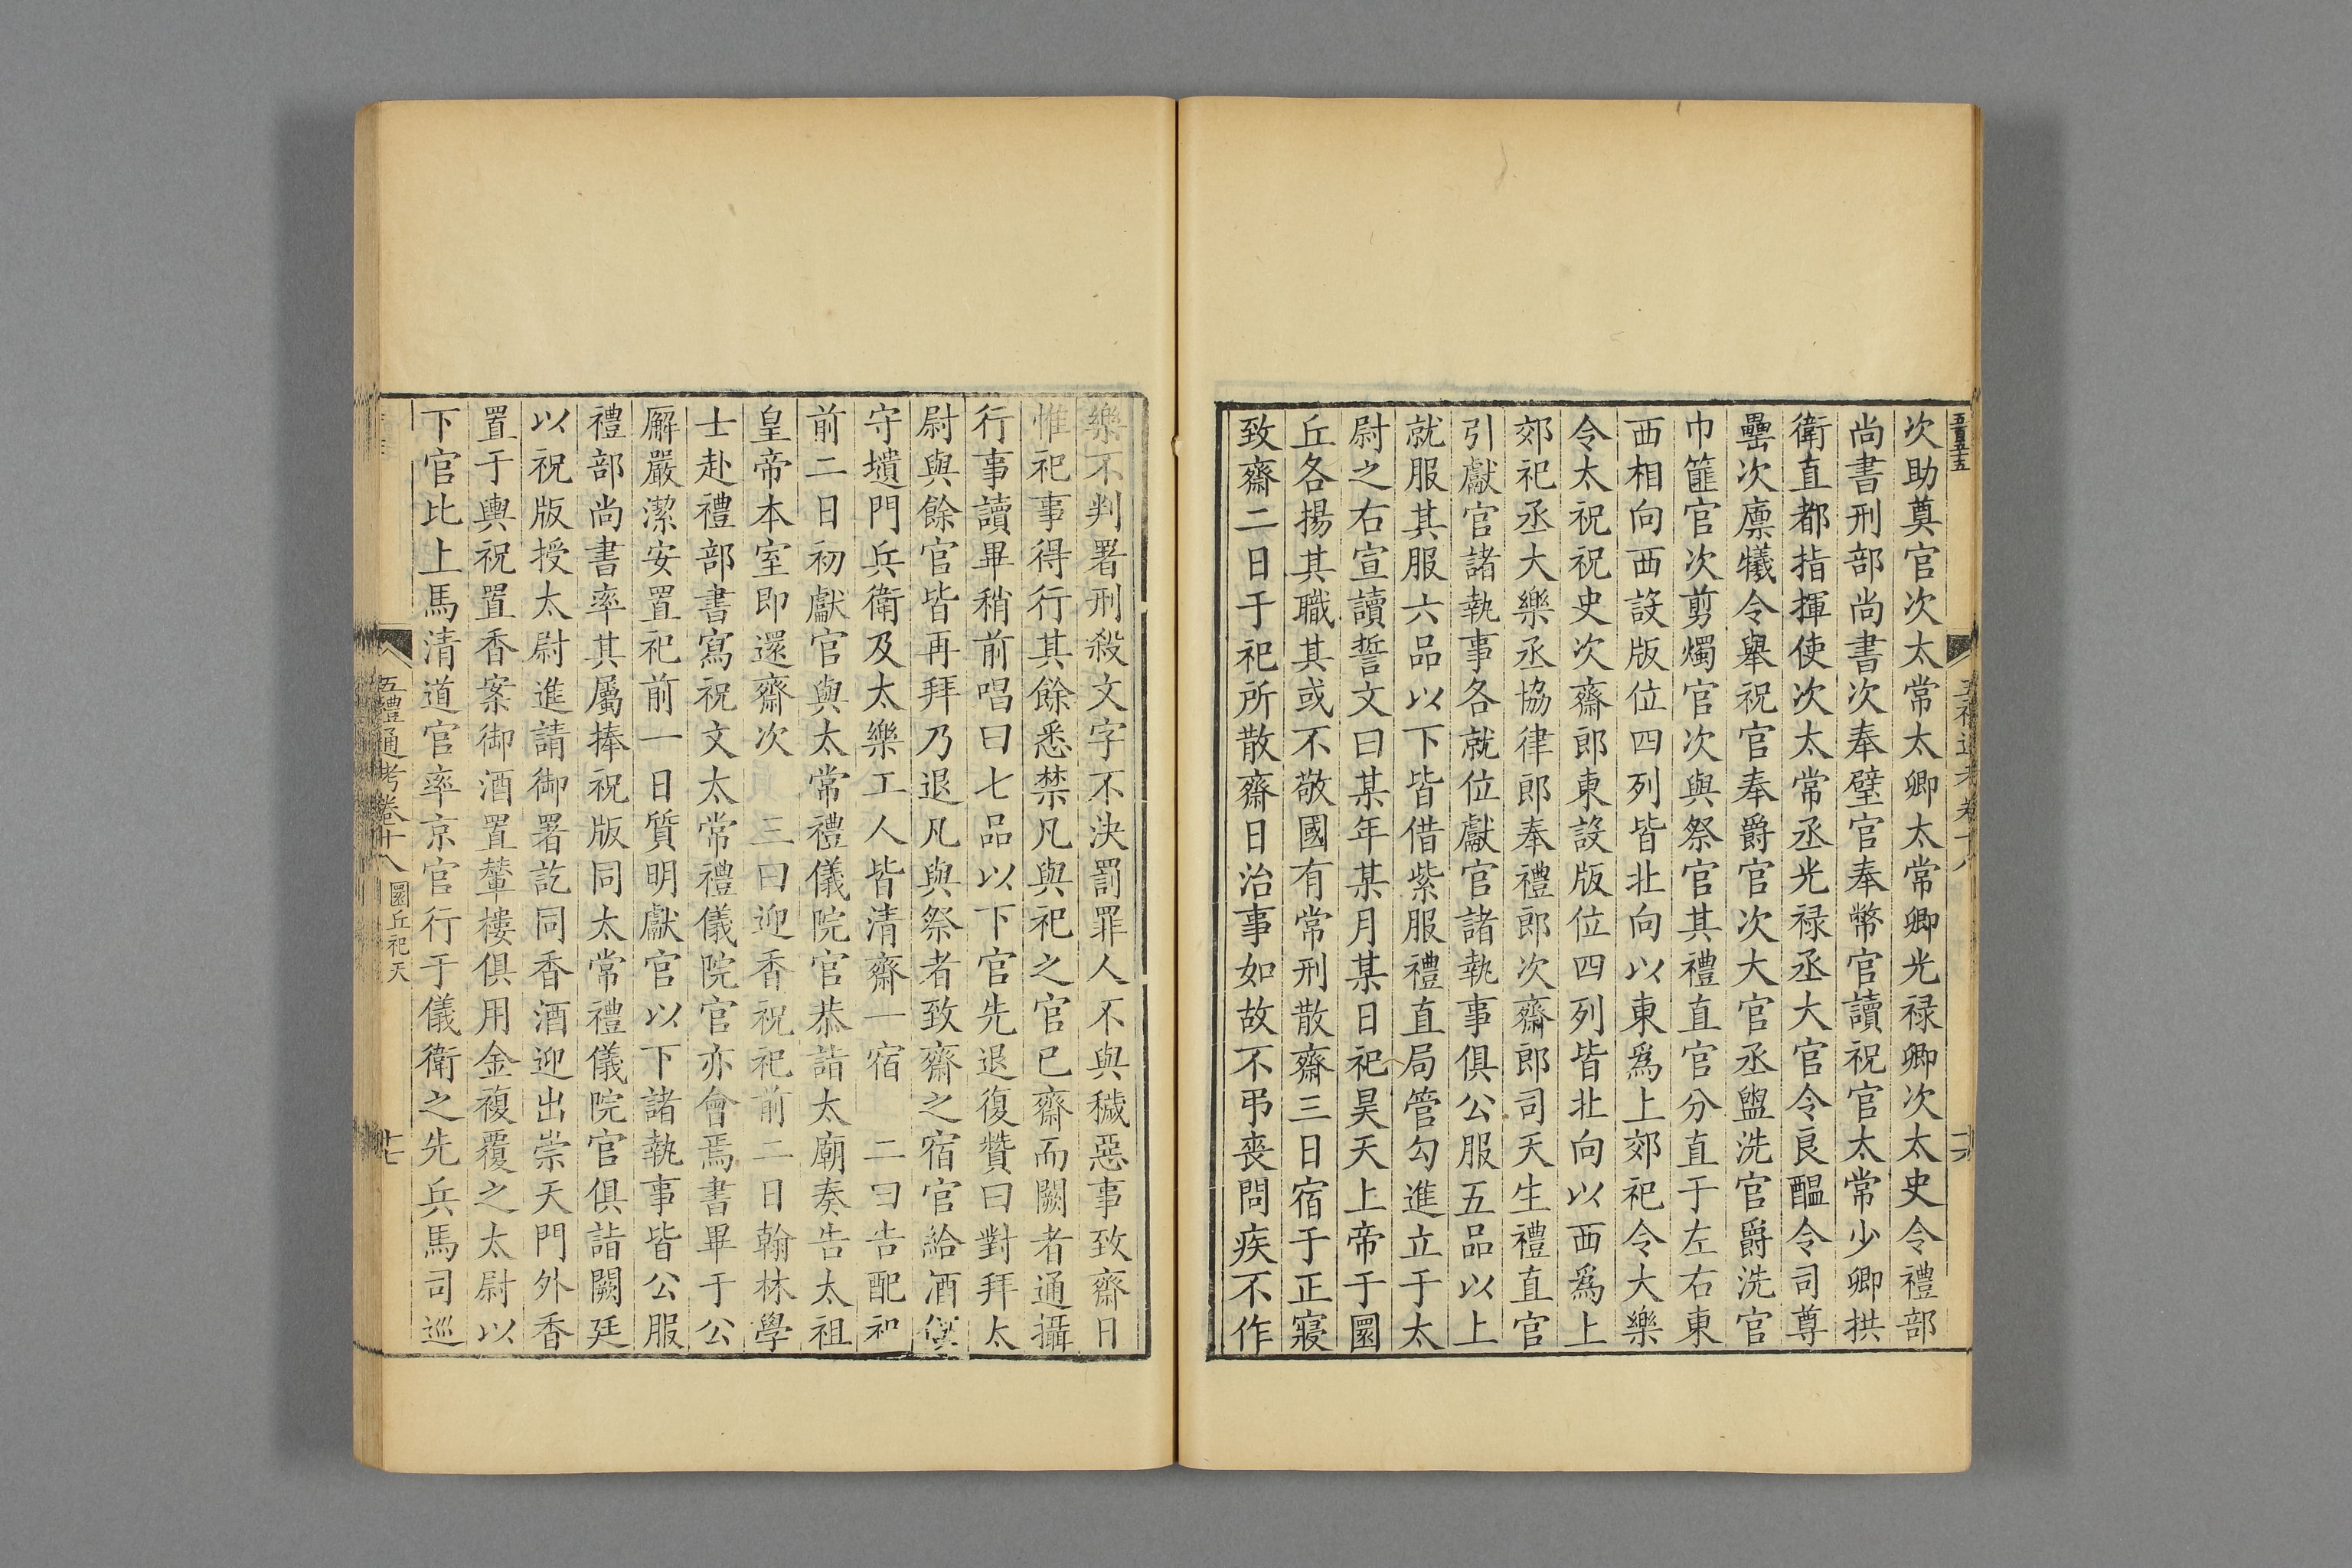 五百五十五
五禮通考卷十八
次助奠官次太常太卿太常卿光禄卿次太史令禮部
尚書刑部尚書次奉璧官奉幣官讀祝官太常少卿拱
衛直都指揮使次太常丞光禄丞大官令良醖令司尊
罍次廪犧令舉祝官奉爵官次大官丞盥洗官爵洗官
巾篚官次剪燭官次與祭官其禮直官分直于左右東
西相向西設版位四列皆北向以東爲上郊祀令大樂
令太祝祝史次齋郎東設版位四列皆北向以西爲上
郊祀丞大樂丞協律郎奉禮郎次齋郎司天生禮直官
引獻官諸執事各就位獻官諸執事俱公服五品以上
就服其服六品以下皆借紫服禮直局管勾進立于太
尉之右宣讀誓文曰某年某月某日祀昊天上帝于圜
丘各揚其職其或不敬國有常刑散齋三日宿于正寢
致齋二日于祀所散齋日治事如故不弔喪問疾不作
樂不判署刑殺文字不決罰罪人不與穢惡事致齋日
惟祀事得行其餘悉禁凡與祀之官已齋而闕者通攝
行事讀畢稍前唱曰七品以下官先退復贊曰對拜太
尉與餘官皆再拜乃退凡與祭者致齋之宿官給酒饌
守壝門兵衛及太樂工人皆清齋一宿　二曰告配祀
前二日初獻官與太常禮儀院官恭詣太廟奏告太祖
皇帝本室即還齋次　三曰迎香祝祀前二日翰林學
士赴禮部書寫祝文太常禮儀院官亦會焉書畢于公
廨嚴潔安置祀前一日質明獻官以下諸執事皆公服
禮部尚書率其屬捧祝版同太常禮儀院官俱詣闕廷
以祝版授太尉進請御署訖同香酒迎出崇天門外香
置于輿祝置香案御酒置輦樓俱用金複覆之太尉以
下官比上馬清道官率京官行于儀衛之先兵馬司巡
五禮通考卷十八　圜丘祀天　十七